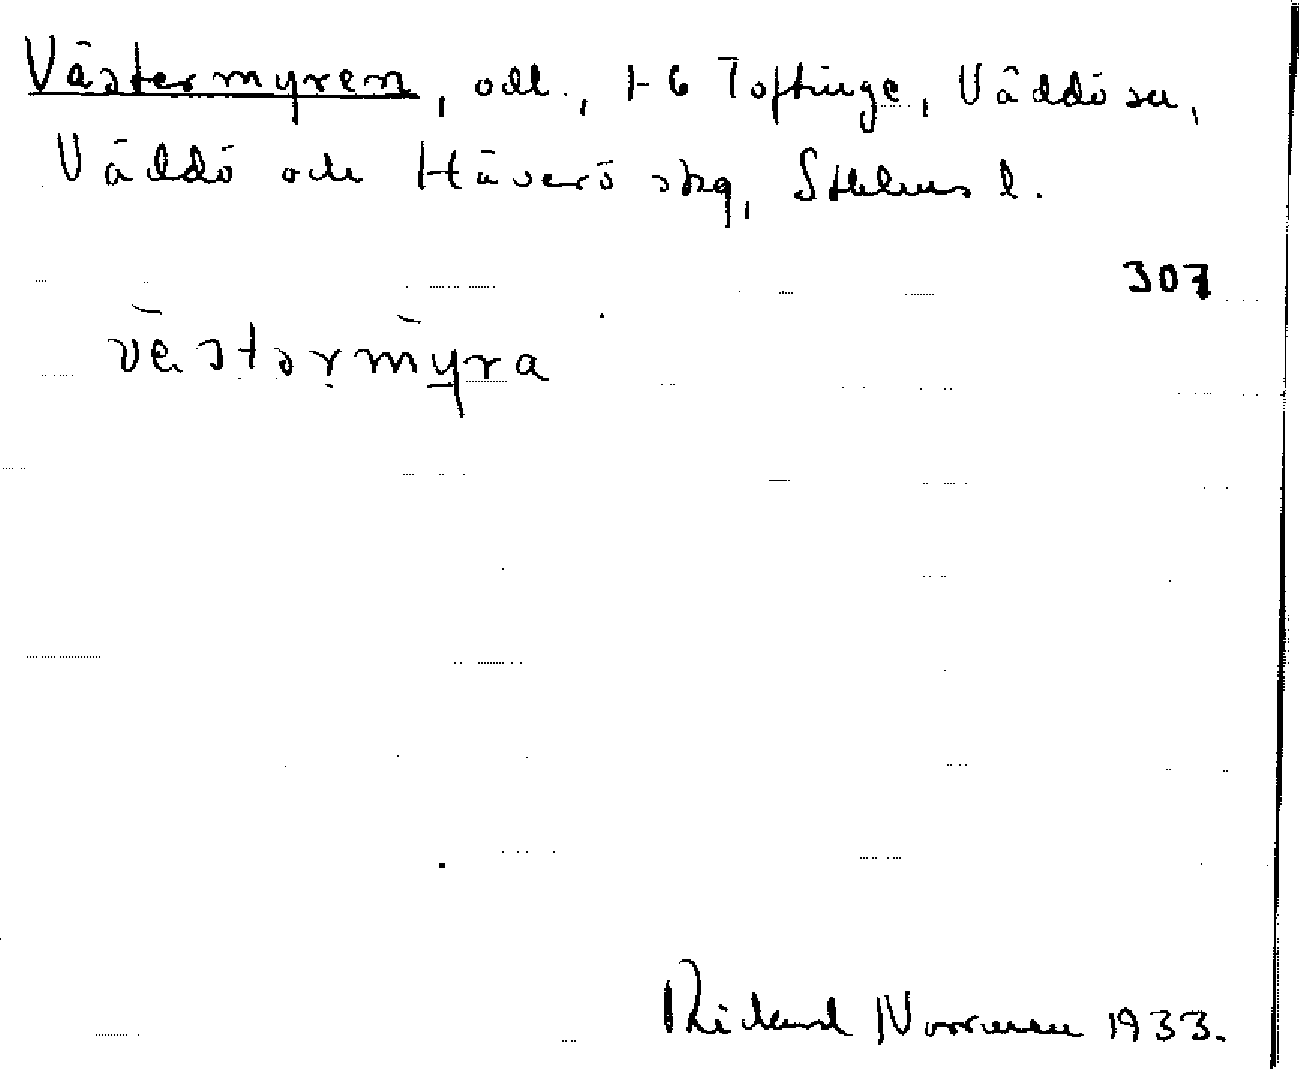 Västermyren, odl., 1-6 Toftinge, Väddö sn,
Väddö och Häverö skg, Sthlms l.
307
vèstərmy̠ra
Rickard Norrman 1933.